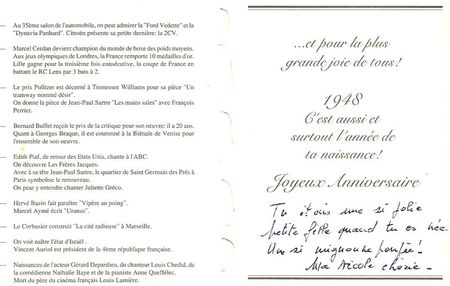 Au 35ème salon de l'automobile, on peut admirer la "Ford Vedette" et la
"Dynavia Panhard". Citroën présente sa petite dernière; la 2CV.
Marcel Cerdan devient champion du monde de boxe des poids moyens.
Aux jeux olympiques de Londres, la France remporte 10 médailles d'or.
Lille gagne pour la troisième fois consécutive, la coupe de France en
battant le RC Lens par 3 buts à 2.
Le prix Pulitzer est décerné à Tennessee Williams pour sa pièce "Un
tramway nommé désir".
On donne la pièce de Jean-Paul Sartre "Les mains sales" avec François
Perrier.
Bernard Buffet reçoit le prix de la critique pour son oeuvre: il a 20 ans.
Quant à Georges Braque, il est couronné à la Biénale de Venise pour
l'ensemble de son oeuvre.
Edith Piaf, de retour des Etats Unis, chante à l'ABC.
On découvre Les Frères Jacques.
Avec à sa tête Jean-Paul Sartre, le quartier de Saint Germain des Prés à
Paris symbolise le renouveau.
On peut y entendre chanter Juliette Gréco.
Hervé Bazin fait paraître "Vipère au poing".
Marcel Aymé écrit "Uranus".
Le Corbusier construit "La cité radieuse" à Marseille.
On voit naître l'état d'Israël.
Vincent Auriol est président de la 4ème république française.
Naissances de l'acteur Gérard Depardieu, du chanteur Louis Chedid, de
la comédienne Nathalie Baye et de la pianiste Anne Queffélec.
Mort du père du cinéma français Louis Lumière.
...et pour la plus
grande joie de tous!
1948
C'est aussi et
surtout l'année de
ta naissance!
Joyeux Anniversaire
Tu étais une si jolie
petite fille quand tu es née.
Une si mignonne poupée!
Ma Nicole chérie.